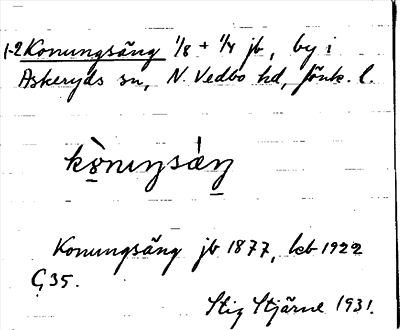 1-2 Konungsäng 1/8 + 1/4 jb, by i
Askeryds sn, N. Vedbo hd, Jönk. l.
kò̤nuŋsä̀ŋ
Konungsäng jb 1877, kb 1922
G35.
Stig Stjärne 1931.